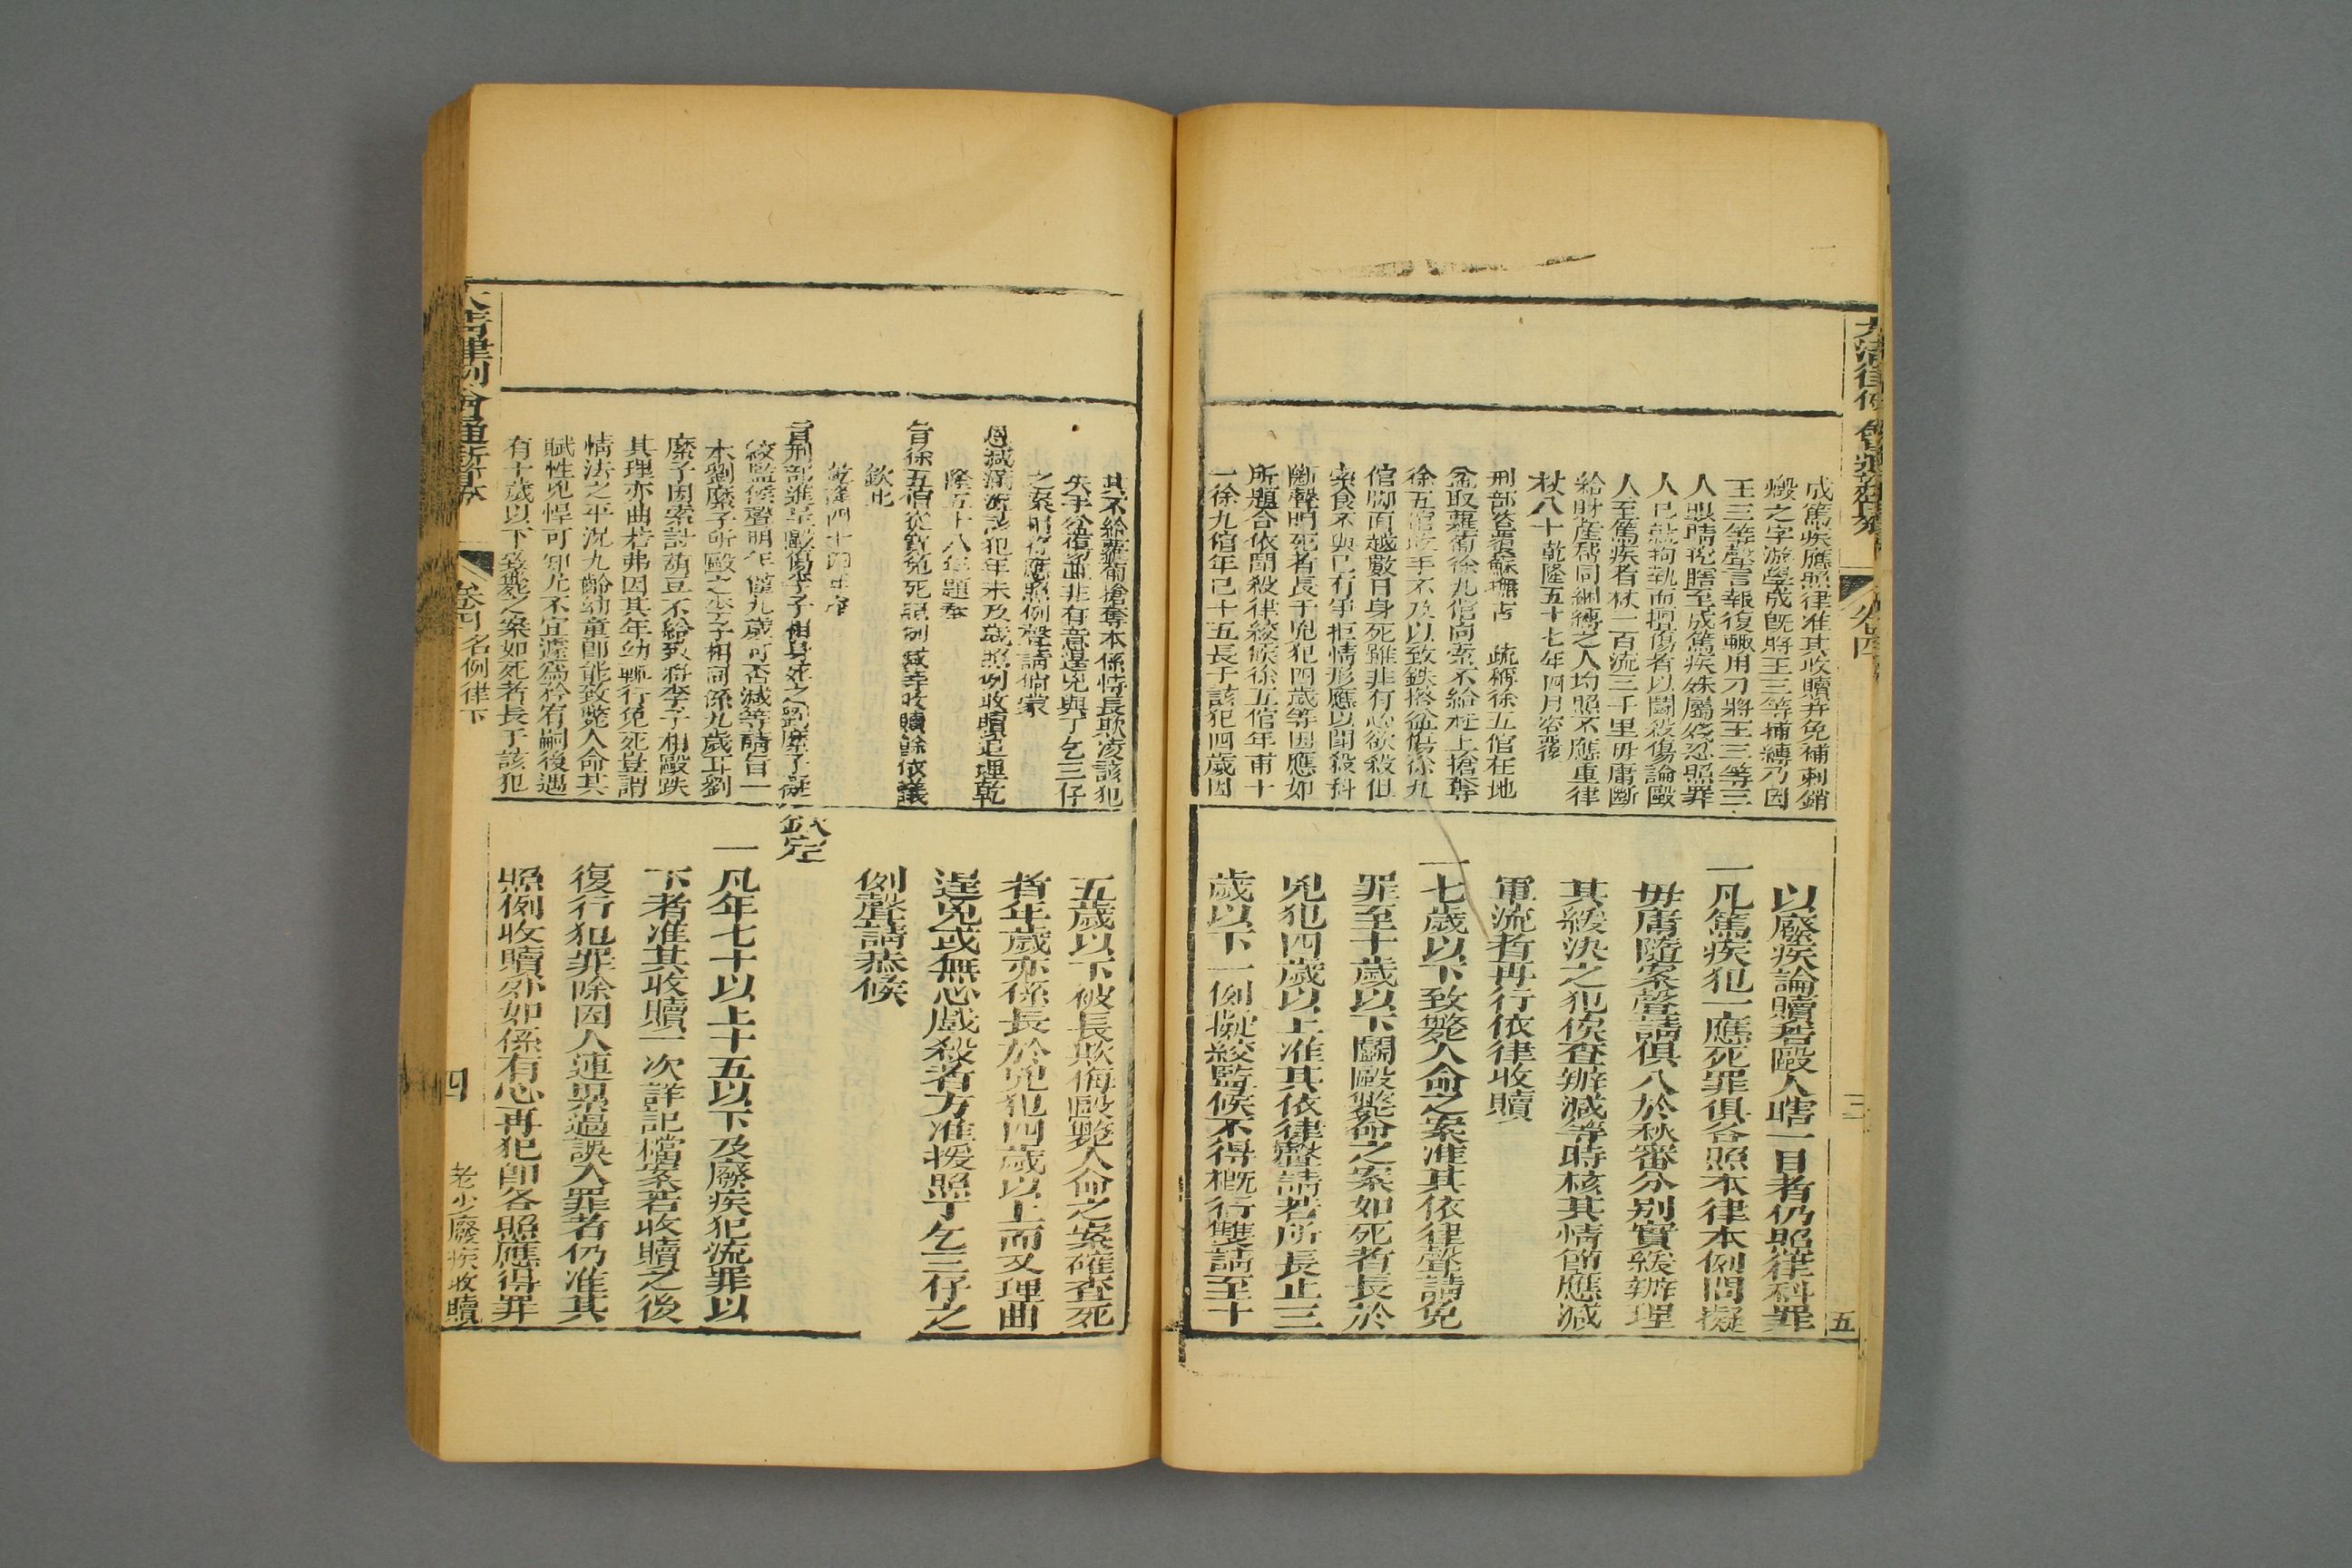 大清律例會通新纂
卷四
三
五
成篤疾應照律准其收贖并免補刺銷
燬之字游學成既將王三等捕縛乃因
王三等聲言報復輒用刀將王三等三
人眼睛挖瞎至成篤疾殊屬殘忍照罪
人已就拘執而損傷者以鬬殺傷論毆
人至篤疾者杖一百流三千里毋庸斷
給財產幫同綑縛之人均照不應重律
杖八十乾隆五十七年四月咨覆
刑部咨覆蘇撫 疏稱徐五倌在地
盆取蘿蔔徐九倌向索不給柱上搶奪
徐五倌收手不及以致鉄搭盆傷徐九
倌脚面越數日身死雖非有心欲殺但
索食不與已有爭拒情形應以鬬殺科
斷聲明死者長于兇犯四歲等因應如
所題合依鬬殺律絞候徐五倌年甫十
一徐九倌年已十五長于該犯四歲因
以廢疾論贖若毆人瞎一目者仍照律科罪
一凡篤疾犯一應死罪俱各照本律本例問擬
毋庸隨案聲請俱入於秋審分別實緩辦理
其緩決之犯俟查辦減等時核其情節應減
軍流者再行依律收贖
一七歲以下致斃人命之案准其依律聲請免
罪至十歲以下鬬毆斃命之案如死者長於
兇犯四歲以上准其依律聲請若所長止三
歲以下一例擬絞監候不得概行雙請至十
其不給蘿蔔搶奪本係恃長欺凌該犯
失手盆復勘並非有意逞兇與丁乞三仔
之案相符應照例聲請倘蒙
恩減滿流該犯年未及歲照例收贖追埋乾
隆五十八年題奉
旨徐五倌從寬免死照例減等收贖餘依議
欽此
乾隆四十四年奉
旨刑部進呈毆傷李子相身死之劉縻子擬
絞監候聲明年僅九歲可否減等請旨一
本劉縻子所毆之李子相同係九歲耳劉
縻子因索討葫豆不給致將李子相毆跌
其理亦曲若弗因其年幼輒行免死豈謂
情法之平況九齡幼童即能致斃人命其
賦性兇悍可知尤不宜遽爲矜宥嗣後遇
有十歲以下致斃之案如死者長于該犯
五歲以下被長欺侮毆斃人命之案確查死
者年歲亦係長於兇犯四歲以上而又理曲
逞兇或無心戲殺者方准援照丁乞三仔之
例聲請恭候
欽定
一凡年七十以上十五以下及廢疾犯流罪以
下者准其收贖一次詳記檔案若收贖之後
復行犯罪除因人連累過誤入罪者仍准其
照例收贖外如係有心再犯卽各照應得罪
大清律例會通新纂
卷四 名例律下
四
老少廢疾收贖